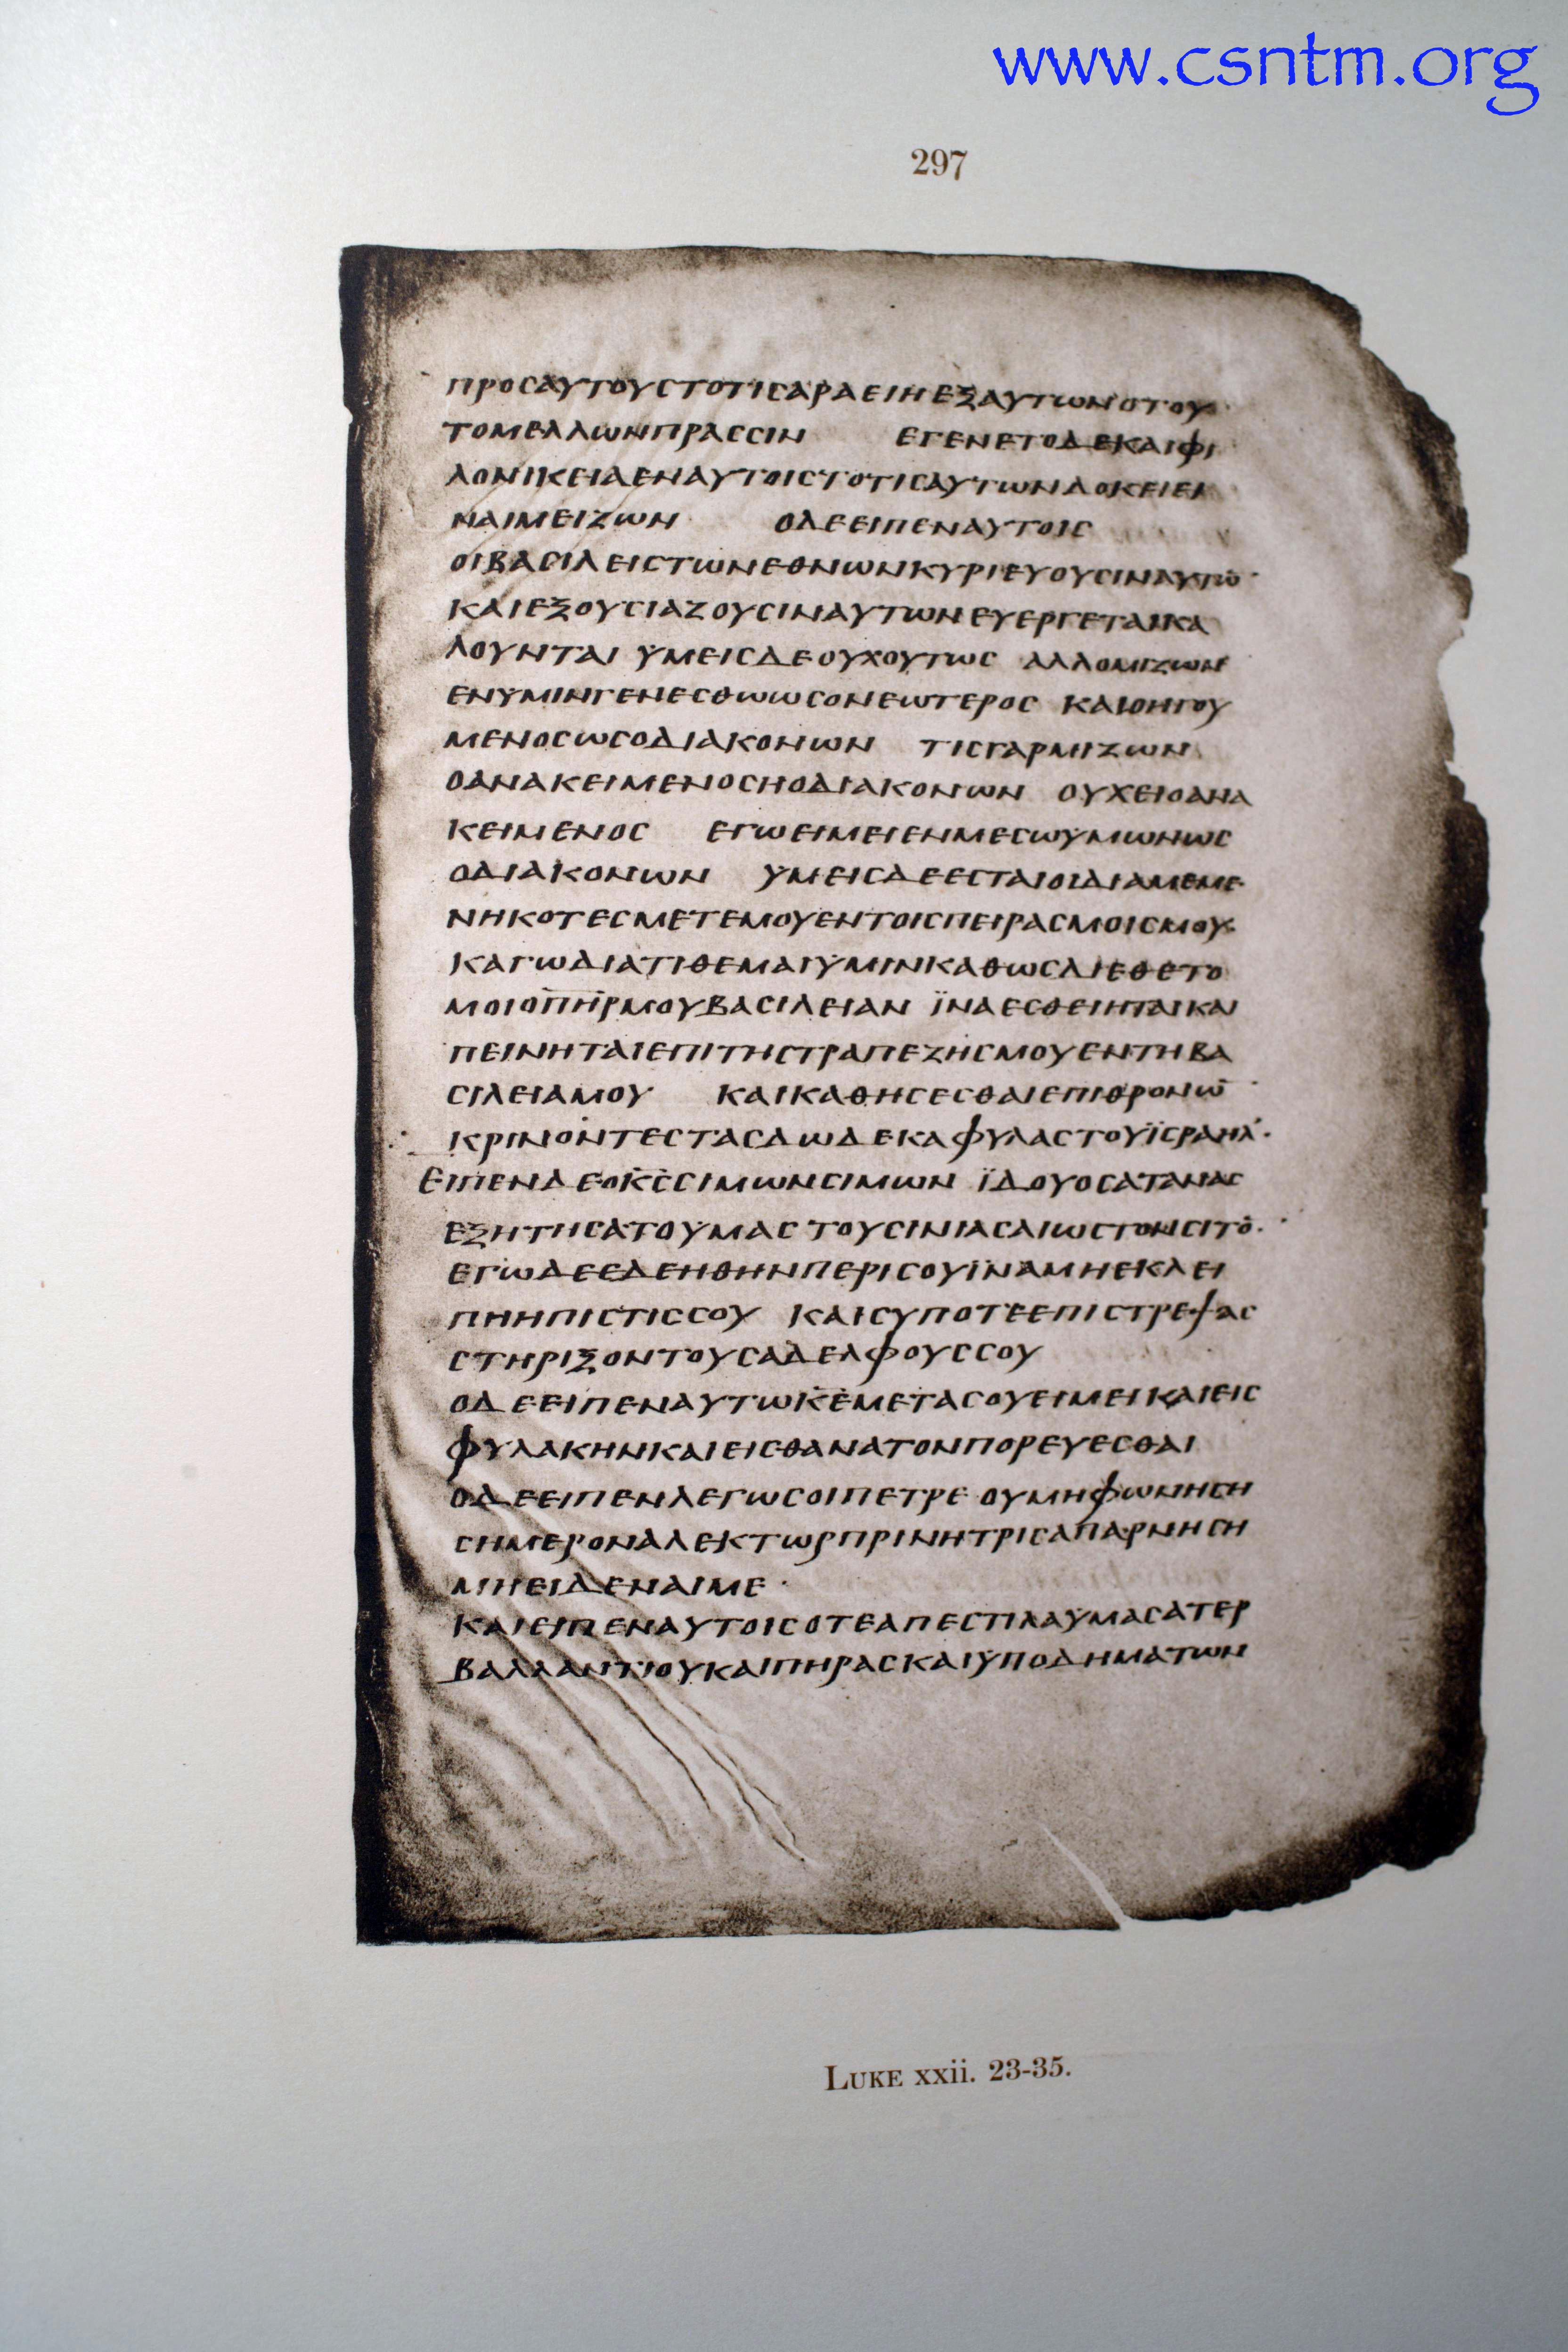 www.csntm.org
297
ΠΡΟСΑΥΤΟΥСΤΟΤΙСΑΡΑΕΙΗΕΞΑΥΤΩΝΟΤΟΥ
ΤΟΜΕΛΛΩΝΠΡΑССΙΝ ΕΓΕΝΕΤΟΔΕΚΑΙΦΙ
ΛΟΝΙΚΕΙΑΕΝΑΥΤΟΙСΤΟΤΙСΑΥΤΩΝΔΟΚΕΙΕΙ
ΝΑΙΜΕΙΖΩΝ ΟΔΕΕΙΠΕΝΑΥΤΟΙС
ΟΙΒΑСΙΛΕΙСΤΩΝΕΘΝΩΝΚΥΡΙΕΥΟΥСΙΝΑΥΤΩ̅
ΚΑΙΕΞΟΥСΙΑΖΟΥСΙΝΑΥΤΩΝΕΥΕΡΓΕΤΑΙΚΑ
ΛΟΥΝΤΑΙ ΫΜΕΙСΔΕΟΥΧΟΥΤΩС ΑΛΛΟΜΙΖΩΝ
ΕΝΫΜΙΝΓΕΝΕСΘΩΩСΟΝΕΩΤΕΡΟС ΚΑΙΟΗΓΟΥ
ΜΕΝΟСΩСΟΔΙΑΚΟΝΩΝ ΤΙСΓΑΡΜΙΖΩΝ
ΟΑΝΑΚΕΙΜΕΝΟСΗΟΔΙΑΚΟΝΩΝ ΟΥΧΕΙΟΑΝΑ
ΚΕΙΜΕΝΟС ΕΓΩΕΙΜΕΙΕΝΜΕСΩΫΜΩΝΩС
ΟΔΙΑΚΟΝΩΝ ΫΜΕΙСΔΕΕСΤΑΙΟΙΔΙΑΜΕΜΕ
ΝΗΚΟΤΕСΜΕΤΕΜΟΥΕΝΤΟΙСΠΕΙΡΑСΜΟΙСΜΟΥ
ΚΑΓΩΔΙΑΤΙΘΕΜΑΙΫΜΙΝΚΑΘΩСΔΙΕΘΕΤΟ
ΜΟΙΟΠ̅Η̅Ρ̅ΜΟΥΒΑСΙΛΕΙΑΝ ΪΝΑΕСΘΕΙΗΤΑΙΚΑΙ
ΠΕΙΝΗΤΑΙΕΠΙΤΗСΤΡΑΠΕΖΗСΜΟΥΕΝΤΗΒΑ
СΙΛΕΙΑΜΟΥ ΚΑΙΚΑΘΗСΕСΘΑΙΕΠΙΘΡΟΝΩ̅
ΚΡΙΝΟΝΤΕСΤΑСΔΩΔΕΚΑΦΥΛΑСΤΟΥΪСΡΑΗΛ·
ΕΙΠΕΝΔΕΟΚ̅С̅СΙΜΩΝСΙΜΩΝ ΪΔΟΥΟСΑΤΑΝΑС
ΕΞΗΤΗСΑΤΟΫΜΑС ΤΟΥСΙΝΙΑСΑΙΩСΤΟΝСΙΤΟ̅·
ΕΓΩΔΕΕΔΕΗΘΗΝΠΕΡΙСΟΥΪΝΑΜΗΕΚΛΕΙ
ΠΗΗΠΙСΤΙССΟΥ ΚΑΙСΥΠΟΤΕΕΠΙСΤΡΕΨΑС
СΤΗΡΙΞΟΝΤΟΥСΑΔΕΛΦΟΥССΟΥ
ΟΔΕΕΙΠΕΝΑΥΤΩΚ̅Ε̅ΜΕΤΑСΟΥΕΙΜΕΙΚΑΙΕΙС
ΦΥΛΑΚΗΝΚΑΙΕΙСΘΑΝΑΤΟΝΠΟΡΕΥΕСΘΑΙ
ΟΔΕΕΙΠΕΝΛΕΓΩСΟΙΠΕΤΡΕ ΟΥΜΗΦΩΝΗСΗ
СΗΜΕΡΟΝΑΛΕΚΤΩΡΠΡΙΝΗΤΡΙСΑΠΑΡΝΗСΗ
ΜΗΕΙΔΕΝΑΙΜΕ·
ΚΑΙΕΙΠΕΝΑΥΤΟΙСΟΤΕΑΠΕСΤΙΛΑΫΜΑСΑΤΕΡ
ΒΑΛΛΑΝΤΙΟΥΚΑΙΠΗΡΑСΚΑΙΫΠΟΔΗΜΑΤΩΝ
LUKE xxii. 23-35.